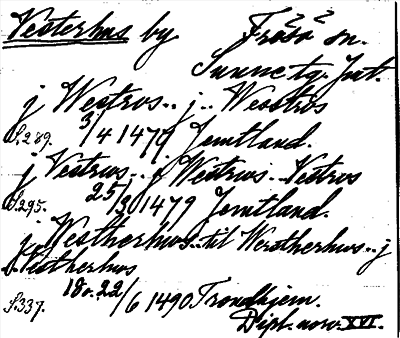 Vesterhus by Frösö sn.
Sunne tg. Jmt.
j Westros.. j.. Wesströs
S. 289. 3/4 1479 Jemtland.
j Vestrus.. j Westrus.. Vestros
S. 295. 25/3 1479 Jemtland.
j Westherhus.. til Westherhus.. j
Vestherhus
S. 337. 18 o. 22/6 1490 Trondhjem.
Dipl. norv. XVI.